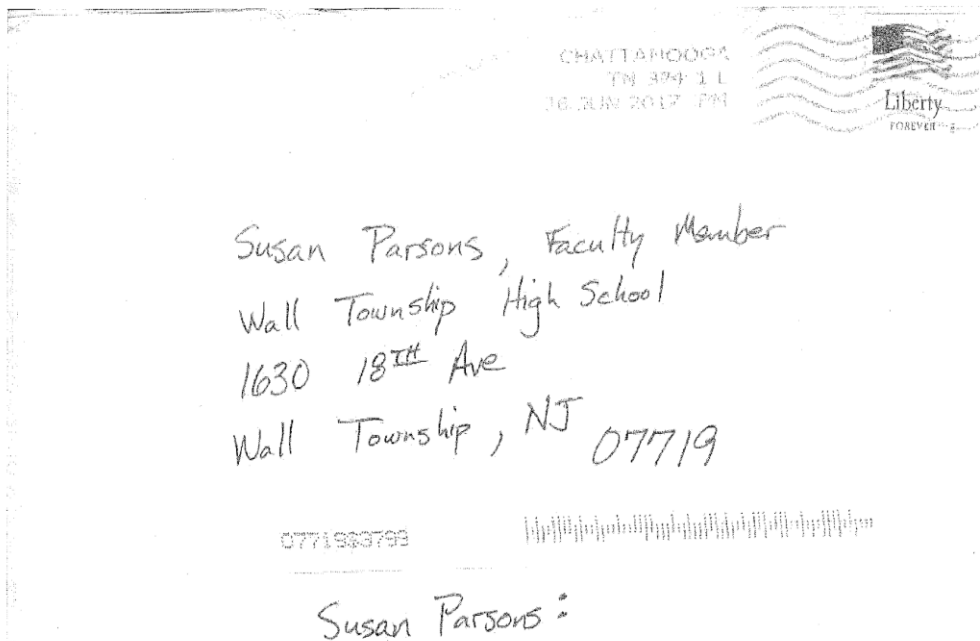 CHATTANOOGA
TN 374 1 L
26 JUN 2017 PM
Liberty
FOREVER
Susan Parsons, Faculty Member
Wall Township High School
1630 18TH Ave
Wall Township, NJ 07719
07719$3799
Susan Parsons: